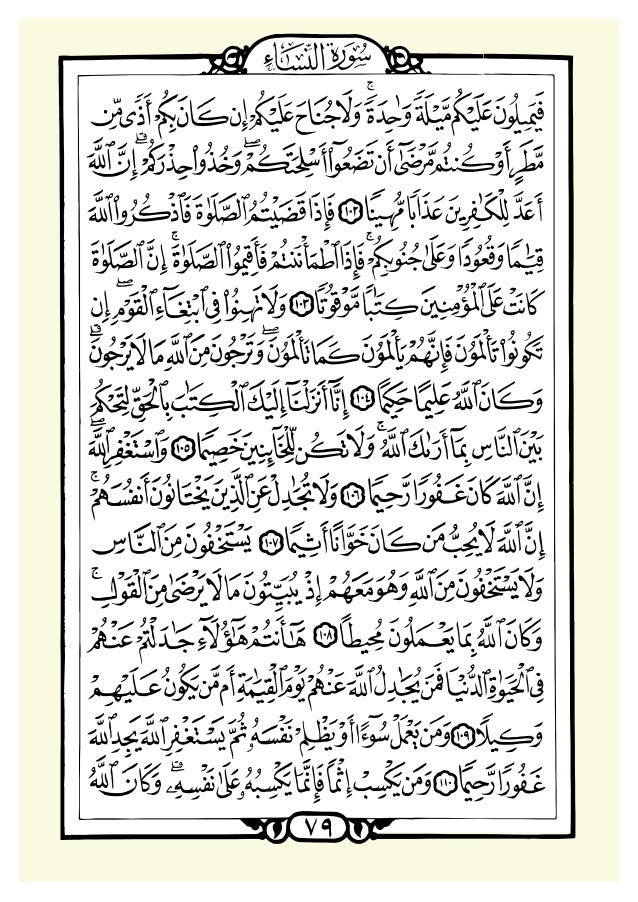 سُورَةُ النِّسَاءِ
فَيَمِيلُونَ عَلَيْكُم مَّيْلَةً وَٰحِدَةً ۚ وَلَا جُنَاحَ عَلَيْكُمْ إِن كَانَ بِكُمْ أَذًى مِّن
مَّطَرٍ أَوْ كُنتُم مَّرْضَىٰٓ أَن تَضَعُوٓا۟ أَسْلِحَتَكُمْ ۖ وَخُذُوا۟ حِذْرَكُمْ ۗ إِنَّ ٱللَّهَ
أَعَدَّ لِلْكَـٰفِرِينَ عَذَابًا مُّهِينًا ١٠٢ فَإِذَا قَضَيْتُمُ ٱلصَّلَوٰةَ فَٱذْكُرُوا۟ ٱللَّهَ
قِيَـٰمًا وَقُعُودًا وَعَلَىٰ جُنُوبِكُمْ ۚ فَإِذَا ٱطْمَأْنَنتُمْ فَأَقِيمُوا۟ ٱلصَّلَوٰةَ ۚ إِنَّ ٱلصَّلَوٰةَ
كَانَتْ عَلَى ٱلْمُؤْمِنِينَ كِتَـٰبًا مَّوْقُوتًا ١٠٣ وَلَا تَهِنُوا۟ فِى ٱبْتِغَآءِ ٱلْقَوْمِ ۖ إِن
تَكُونُوا۟ تَأْلَمُونَ فَإِنَّهُمْ يَأْلَمُونَ كَمَا تَأْلَمُونَ ۖ وَتَرْجُونَ مِنَ ٱللَّهِ مَا لَا يَرْجُونَ ۗ
وَكَانَ ٱللَّهُ عَلِيمًا حَكِيمًا ١٠٤ إِنَّآ أَنزَلْنَآ إِلَيْكَ ٱلْكِتَـٰبَ بِٱلْحَقِّ لِتَحْكُمَ
بَيْنَ ٱلنَّاسِ بِمَآ أَرَىٰكَ ٱللَّهُ ۚ وَلَا تَكُن لِّلْخَآئِنِينَ خَصِيمًا ١٠٥ وَٱسْتَغْفِرِ ٱللَّهَ ۖ
إِنَّ ٱللَّهَ كَانَ غَفُورًا رَّحِيمًا ١٠٦ وَلَا تُجَـٰدِلْ عَنِ ٱلَّذِينَ يَخْتَانُونَ أَنفُسَهُمْ ۚ
إِنَّ ٱللَّهَ لَا يُحِبُّ مَن كَانَ خَوَّانًا أَثِيمًا ١٠٧ يَسْتَخْفُونَ مِنَ ٱلنَّاسِ
وَلَا يَسْتَخْفُونَ مِنَ ٱللَّهِ وَهُوَ مَعَهُمْ إِذْ يُبَيِّتُونَ مَا لَا يَرْضَىٰ مِنَ ٱلْقَوْلِ ۚ
وَكَانَ ٱللَّهُ بِمَا يَعْمَلُونَ مُحِيطًا ١٠٨ هَـٰٓأَنتُمْ هَـٰٓؤُلَآءِ جَـٰدَلْتُمْ عَنْهُمْ
فِى ٱلْحَيَوٰةِ ٱلدُّنْيَا فَمَن يُجَـٰدِلُ ٱللَّهَ عَنْهُمْ يَوْمَ ٱلْقِيَـٰمَةِ أَم مَّن يَكُونُ عَلَيْهِمْ
وَكِيلًا ١٠٩ وَمَن يَعْمَلْ سُوٓءًا أَوْ يَظْلِمْ نَفْسَهُۥ ثُمَّ يَسْتَغْفِرِ ٱللَّهَ يَجِدِ ٱللَّهَ
غَفُورًا رَّحِيمًا ١١٠ وَمَن يَكْسِبْ إِثْمًا فَإِنَّمَا يَكْسِبُهُۥ عَلَىٰ نَفْسِهِۦ ۚ وَكَانَ ٱللَّهُ
٧٩